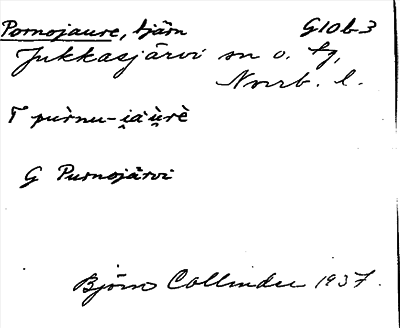 Pornojaure, tjärn G10b3
Jukkasjärvi sn o. tg,
Norrb. l.
T pùrnu-i̯àu̯rè
G Purnojärvi
Björn Collinder 1937.